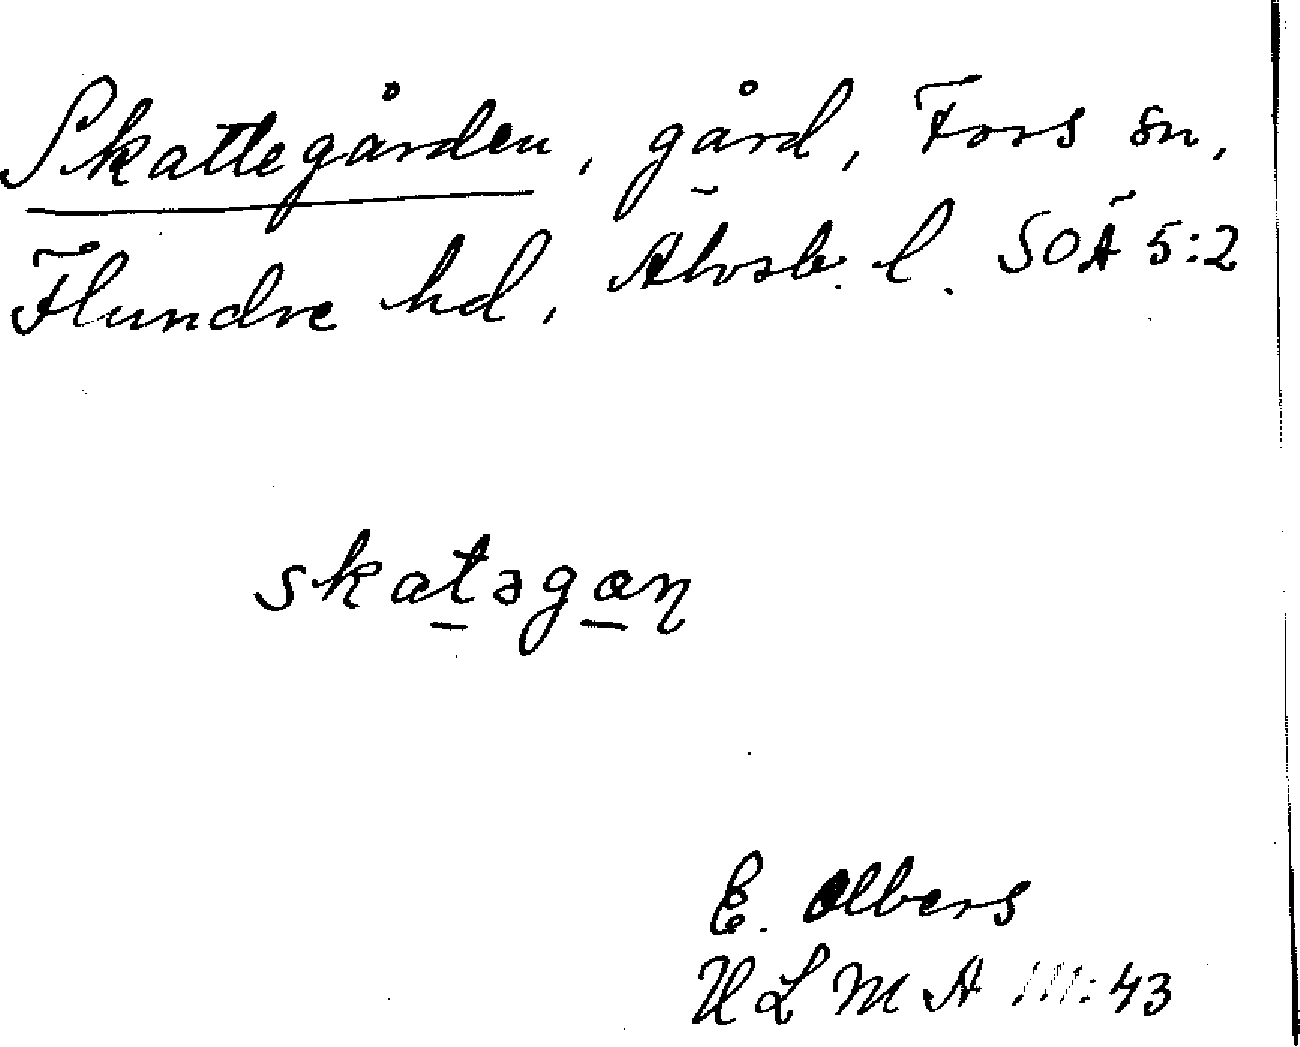 Skattegården, gård, Fors sn,
Flundre hd, Älvsb. l. SOÄ 5:2
skatəgan
E. Olbers
ULMA 111:43